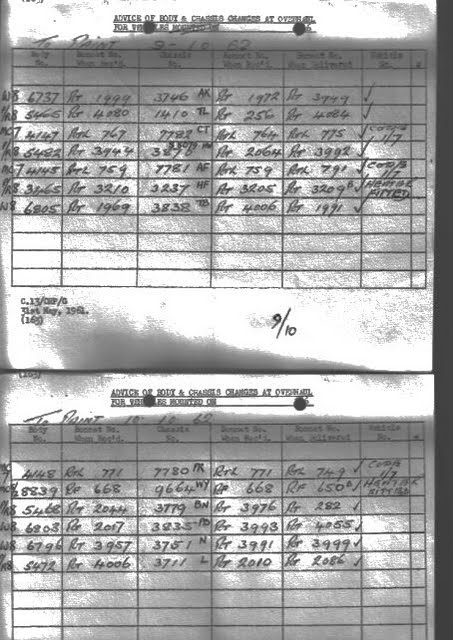 ADVICE OF BODY & CHASSIS CHANGES AT OVERHAUL
FOR VEHICLES MOUNTED ON
To PAINT 9-10-62
Body No. Bonnet No. When Rec'd. Chassis No. Bonnet No. When Rec'd. Bonnet No. When Delivered Vehicle No.
W8 6737 Rt 1999 3746 AK Rt 1972 Rt 3949 ✓
5465 Rt 4080 1410 TL Rt 256 Rt 4084 ✓
4147 Rtl 767 7782 CT Rtl 764 Rtl 775 ✓
5482 Rt 3944 Rt 2064 Rt 3992 ✓
4145 Rtl 759 7781 AF Rtl 759 Rtl 791 ✓
3465 Rt 3210 3237 HF Rt 3205 Rt 3209 HEATER FITTED
W8 6805 Rt 1969 3838 TB Rt 4006 Rt 1991 ✓
C.13/CHF/G
31st May, 1961.
(165)
9/10
ADVICE OF BODY & CHASSIS CHANGES AT OVERHAUL
FOR VEHICLES MOUNTED ON
To PAINT 10-10-62
Body No. Bonnet No. When Rec'd. Chassis No. Bonnet No. When Rec'd. Bonnet No. When Delivered Vehicle No.
4148 Rtl 771 7780 PK Rtl 771 Rtl 749 ✓
8839 RF 668 9664 WY RF 668 RF 650 HEATER FITTED
5468 Rt 2044 3779 BN Rt 3976 Rt 282 ✓
W8 6808 Rt 2017 3835 PD Rt 3993 Rt 4055 ✓
W8 6796 Rt 3957 3751 N Rt 3991 Rt 3999 ✓
5472 Rt 4006 3711 L Rt 2010 Rt 2086 ✓